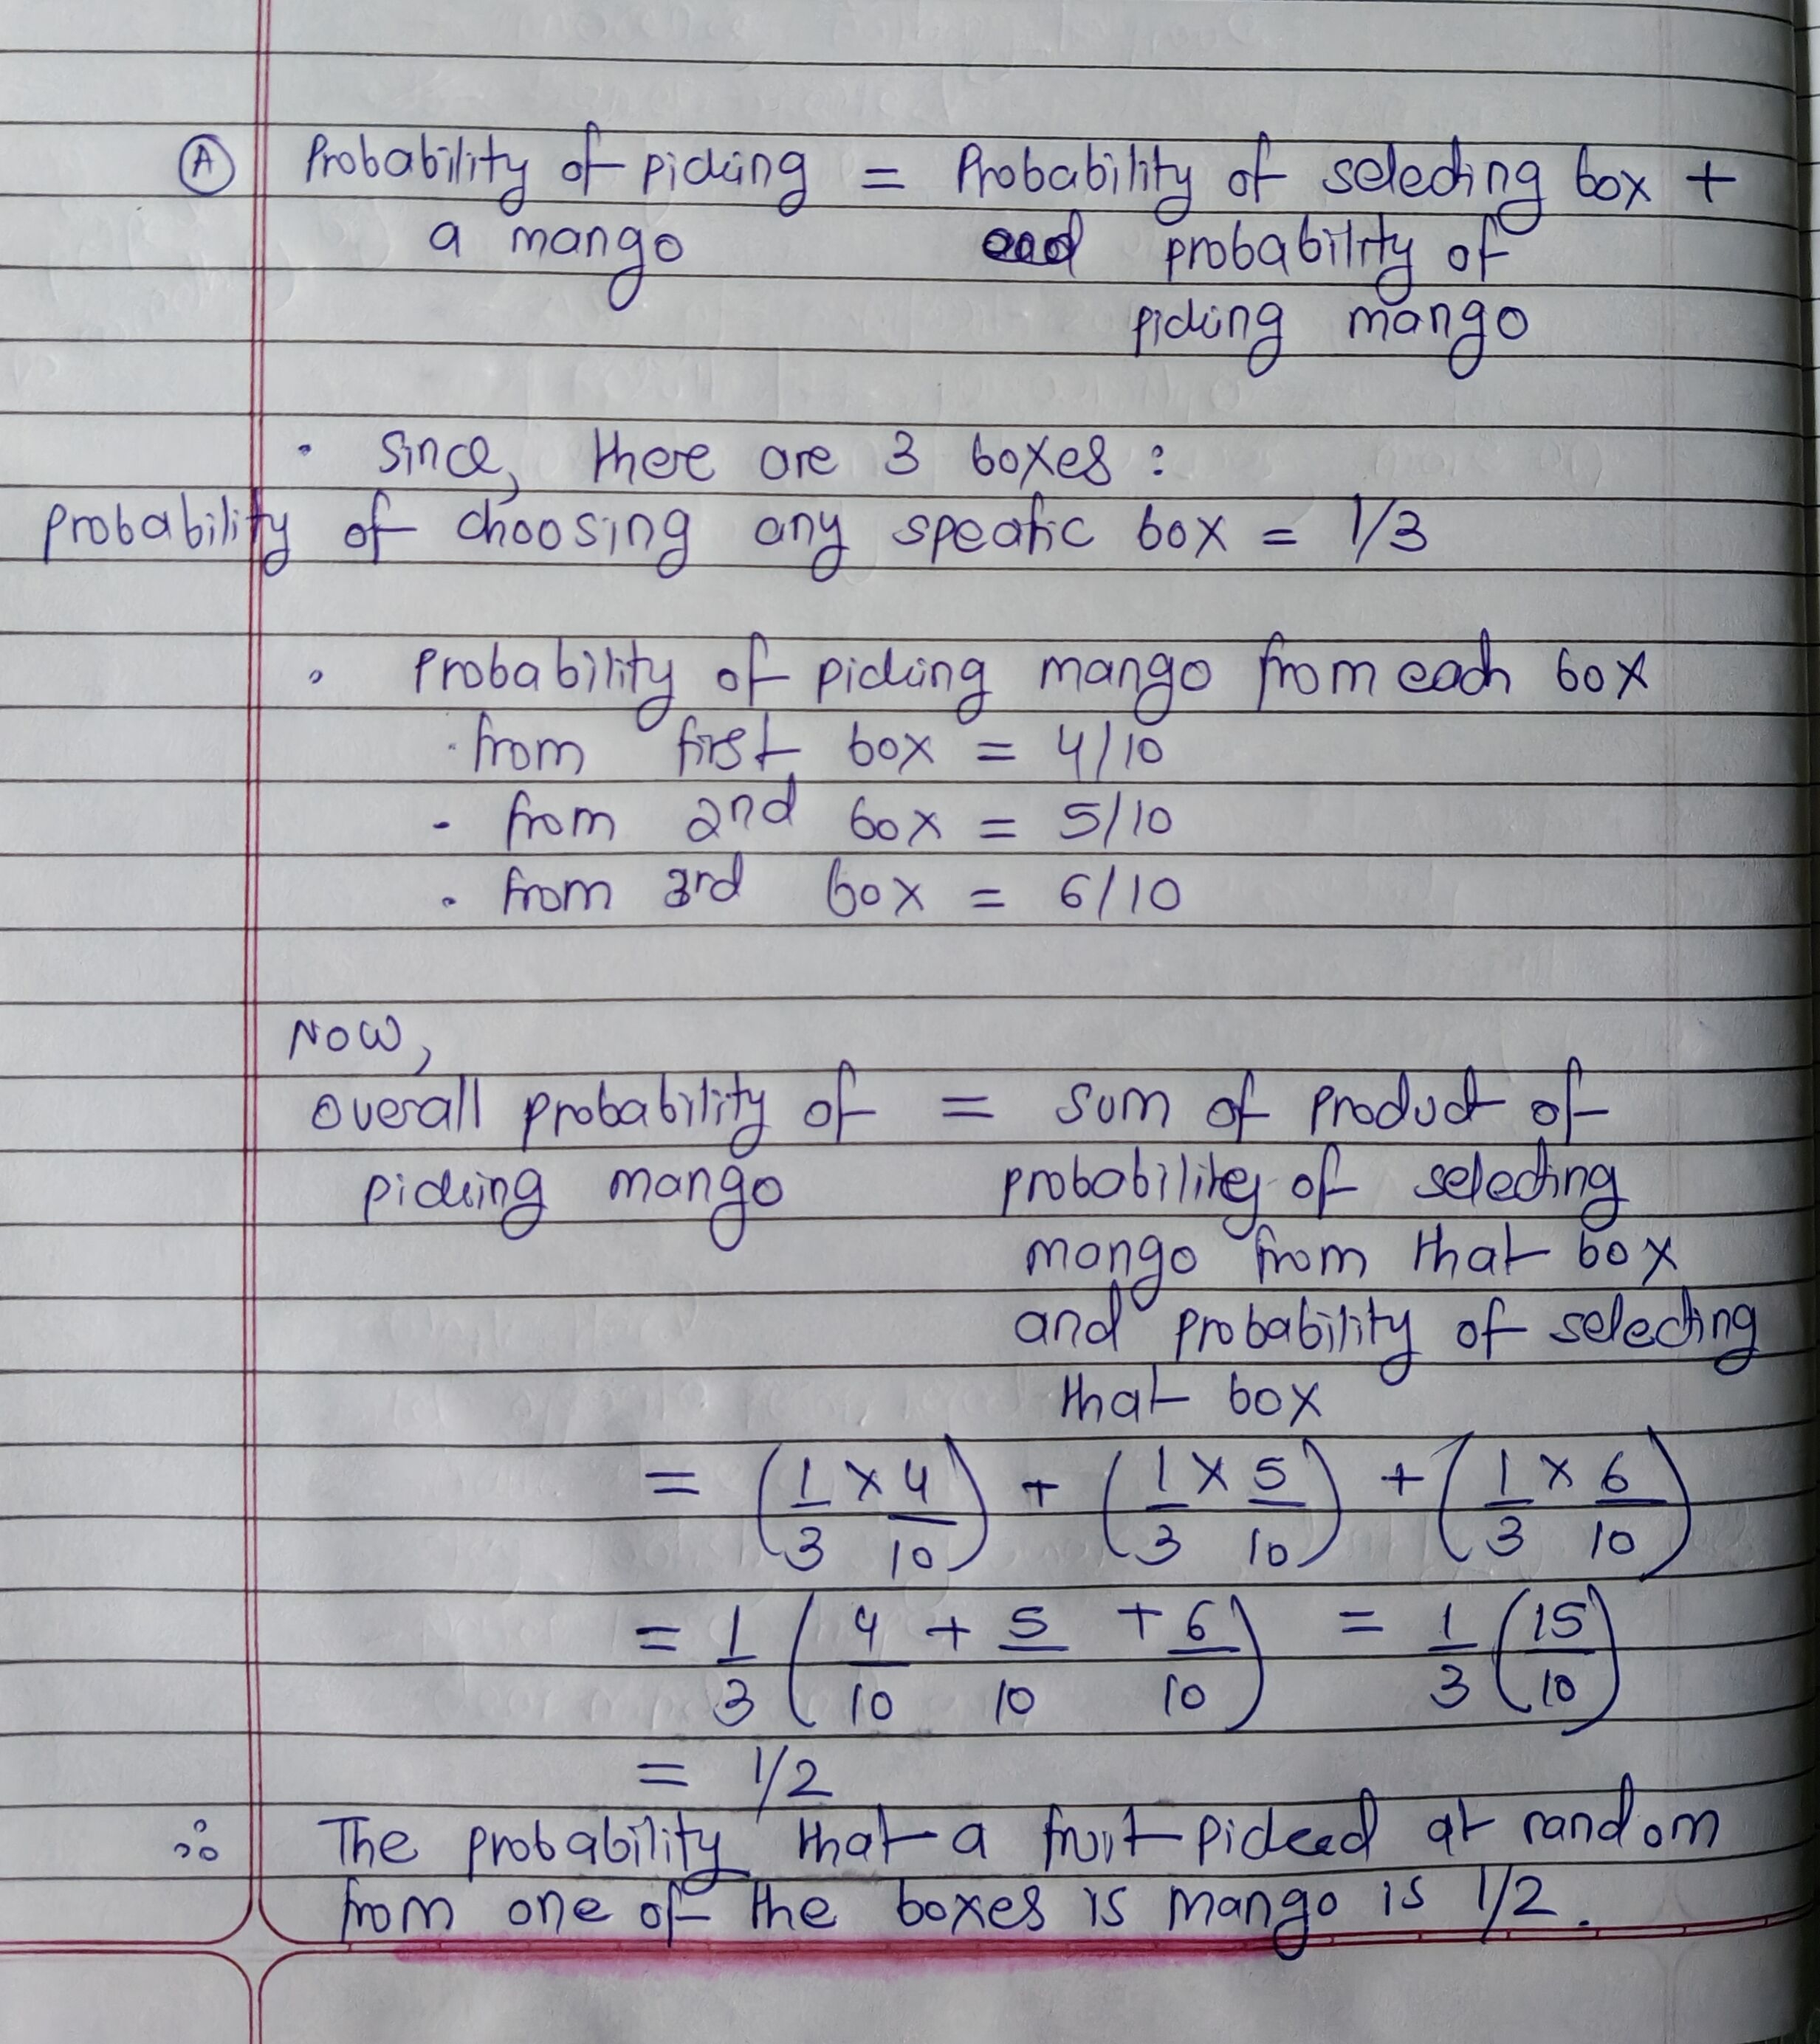 Ⓐ Probability of picking = Probability of selecting box +
a mango probability of
picking mango
· Since, there are 3 boxes :
Probability of choosing any specific box = 1/3
· Probability of picking mango from each box
· from first box = 4/10
- from 2nd box = 5/10
· from 3rd box = 6/10
Now,
overall probability of = sum of product of
picking mango probability of selecting
mango from that box
and probability of selecting
that box
= (1/3 × 4/10) + (1/3 × 5/10) + (1/3 × 6/10)
= 1/3 (4/10 + 5/10 + 6/10) = 1/3 (15/10)
= 1/2
∴ The probability that a fruit picked at random
from one of the boxes is mango is 1/2.